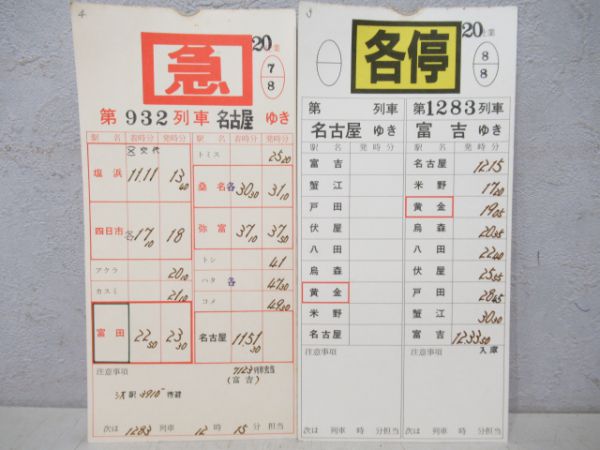 4
急
20 業
7
8
第 932 列車 名古屋 ゆき
駅 名 着時分 発時分
各 交代
塩 浜 11.11 13 40
四日市 各 17 10 18
アクラ 20 10
カスミ 21 10
富 田 22 50 23 30
駅 名 着時分 発時分
トミス 25 20
桑 名 各 30 30 31 10
弥 富 37 10 37 50
トシ 41
ハタ 各 47 30
コメ 49 30
名古屋 1151 30
注意事項
(富吉)
次は 1283 列車 12 時 15 分 担当
3
各停
20 業
8
8
第 列車
名古屋 ゆき
駅 名 発 時 分
富 吉
蟹 江
戸 田
伏 屋
八 田
烏 森
黄 金
米 野
名古屋
注意事項
次は 列車 時 分担当
第1283列車
富 吉 ゆき
駅 名 発 時 分
名古屋 12.15
米 野 17 20
黄 金 19 05
烏 森 20 35
八 田 22 40
伏 屋 25 35
戸 田 28 45
蟹 江 30 30
富 吉 12.33 50
入庫
次は 列車 時 分担当